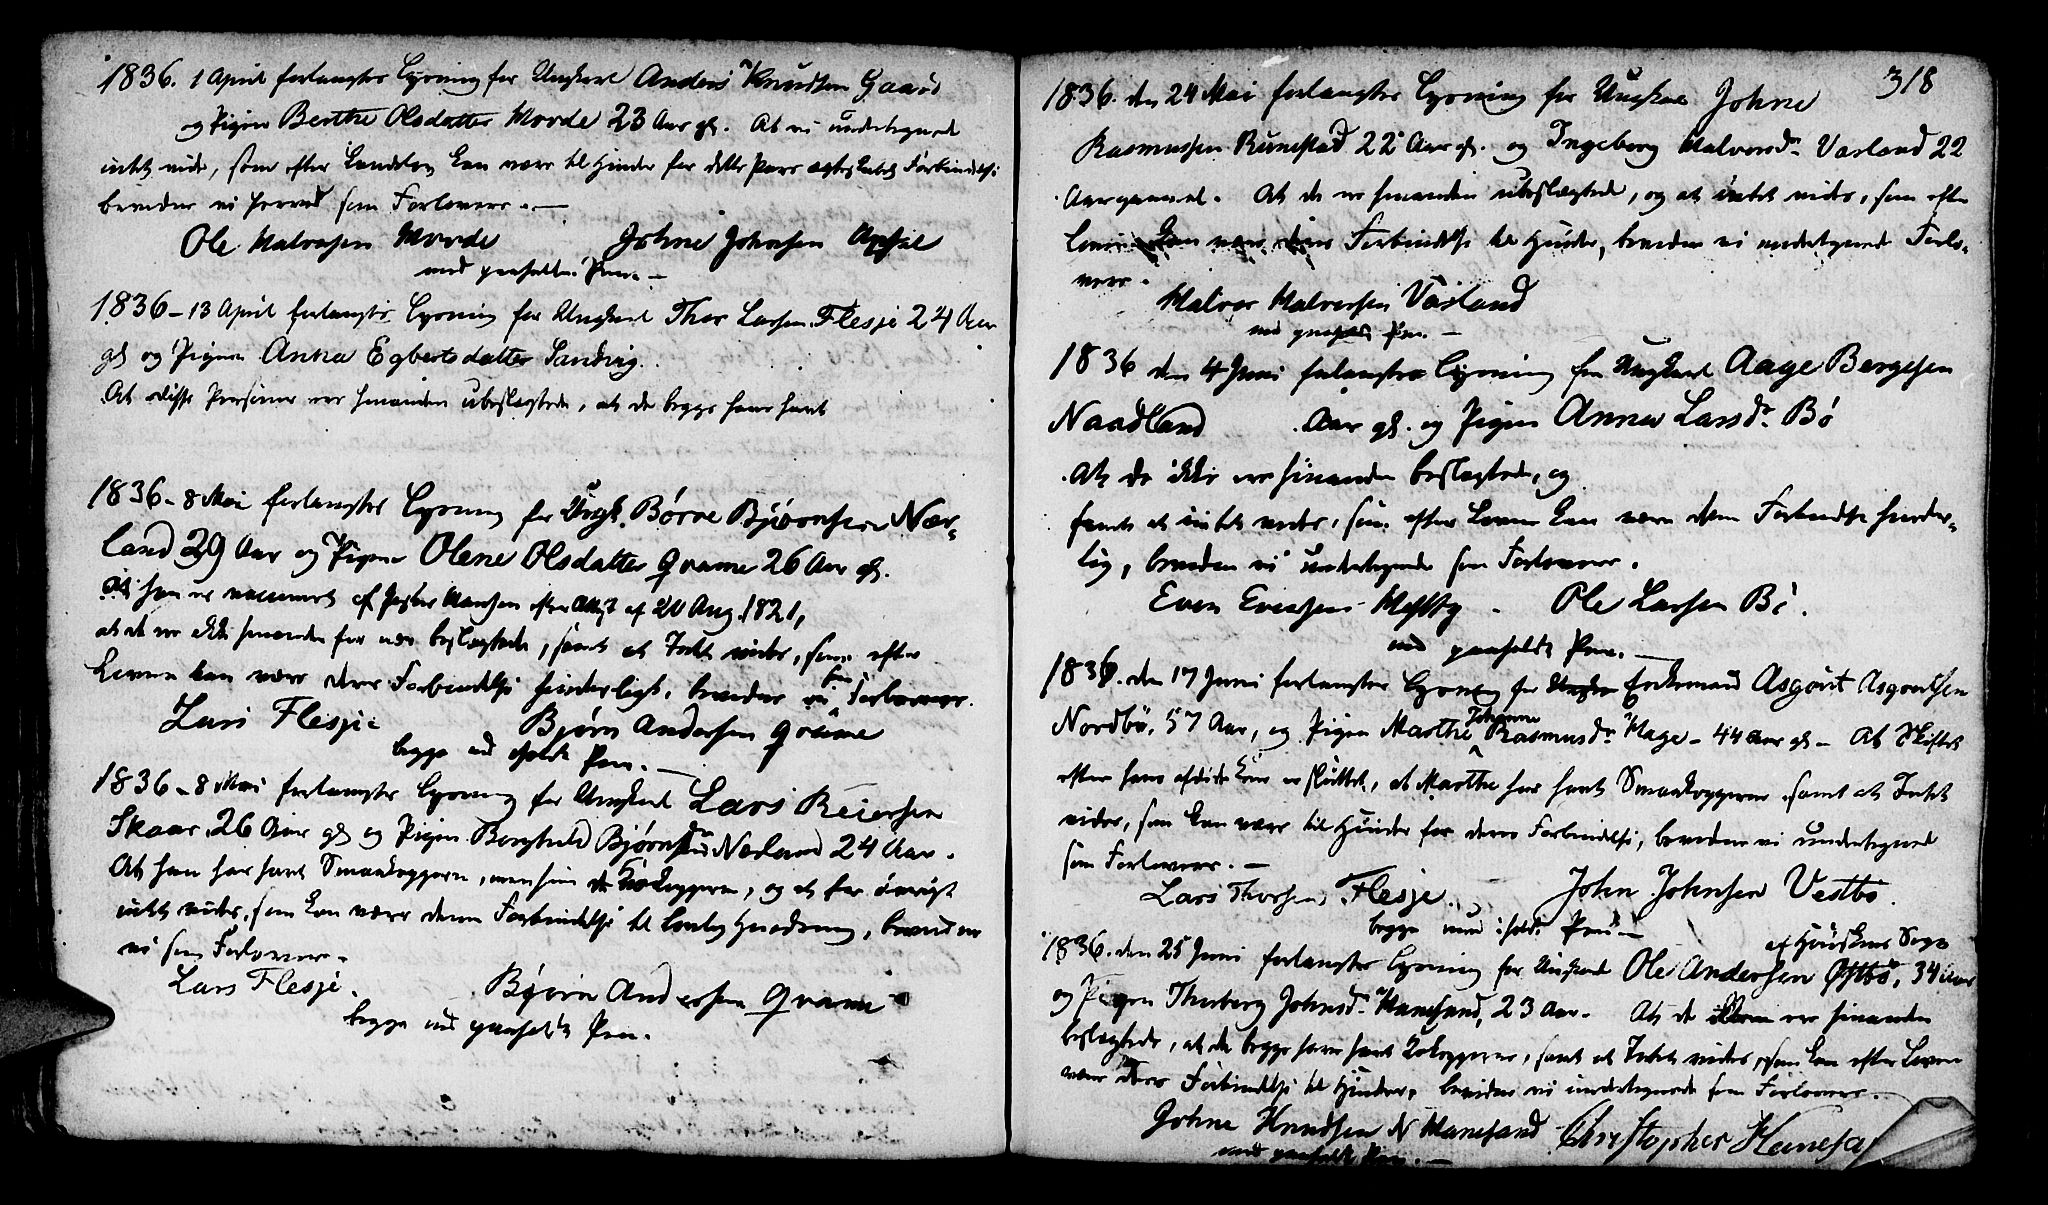 1836. 1 April forlangtes Lysning for Ungkarl Anders Knudsen Gaard
og Pigen Berthe Olsdatter Morde 23 Aar gl. At vi undertegnede
intet vide, som efter Landslov kan være til Hinder for dette Pars ægteskabelige Forbindelse
bevidne vi herved som Forlovere. —
Ole Halvorsen Morde Johne Johnsen Opsal
med paaholden Pen. —
1836 – 13 April forlangtes Lysning for Ungkarl Thor Larsen Flesje 24 Aar
gl og Pigen Anna Egbertsdatter Sandvig.
At disse Personer er hinanden ubeslægtede, at de begge have havt
1836 – 8 Mai forlangtes Lysning for Ungk. Børre Bjørnsen Nær-
land 29 Aar og Pigen Olene Olsdatter Qvame 26 Aar gl.
at han er vaccineret af Hansen efter Attest af 20 Aug. 1821,
at de er ikke hinanden for nær beslægtede, samt at Intet vides, som efter
Loven kan være deres Forbindelse hinderligt, bevidne vi som Forlovere.
Lars Flesje Bjørn Andersen Qvame
begge med iholdt Pen. —
1836 – 8 Mai forlangtes Lysning for Ungkarl Lars Reiersen
Skaar 26 Aar gl og Pigen Borghild Bjørnsdr Nærland 24 Aar.
At han har havt Smaakopperne, men hun Kokopperne, og at for øvrigt
intet vides, som kan være deres Forbindelse til lovlig Hindring, bevidne
vi som Forlovere.
Lars Flesje. Bjørn Andersen Qvame
begge med paaholdt Pen.
318
1836. den 24 Mai forlangtes Lysning for Ungkarl Johne
Rasmussen Runestad 22 Aar gl. og Ingeborg Halvorsdr. Vasland 22
Aar gammel. At de er hinanden ubeslægtede, og at intet vides, som efter
Loven kan være deres Forbindelse til Hinder, bevidne vi undertegnede Forlo-
vere.
Halvor Halvorsen Vasland
med paaholdt Pen. —
1836 den 4 Juni forlangtes Lysning for Ungkarl Aage Bergesen
Naadland Aar gl. og Pigen Anna Larsdr. Bø
At de ikke er hinanden beslægtede, og
samt at intet vides, som efter Loven kan være dem Forbindelse hinder-
lig, bevidne vi undertegnede som Forlovere.
Even Evensen Ole Larsen Bø.
med paaholdt Pen. —
1836. den 17 Juni forlangtes Lysning for Enkemand Asgout Asgoutsen
Nordbø, 57 Aar, og Pigen Marthe Johanne Rasmusdr Hage – 44 Aar gl – At Skiftet
efter hans afdøde Kone er sluttet, at Marthe har havt Smaakopperne samt at Intet
vides, som kan være til Hinder for deres Forbindelse, bevidne vi undertegnede
som Forlovere. —
Lars Thorsen Flesje. John Johnsen Vestbø.
begge med iholdt Pen —
1836. den 25 Juni forlangtes Lysning for Ungkarl Ole Andersen Østbø, af Høiskens Sogn 34 Aar
og Pigen Thorborg Johnsdr. Hanesand, 23 Aar. At de er hinanden
beslægtede, at de begge have havt Kokopperne, samt at Intet vides, som kan efter Loven
være deres Forbindelse til Hinder, bevidne vi undertegnede som Forlovere.
Johne Knudsen Hanesand Christopher Hanesa
med paaholdt Pen. —